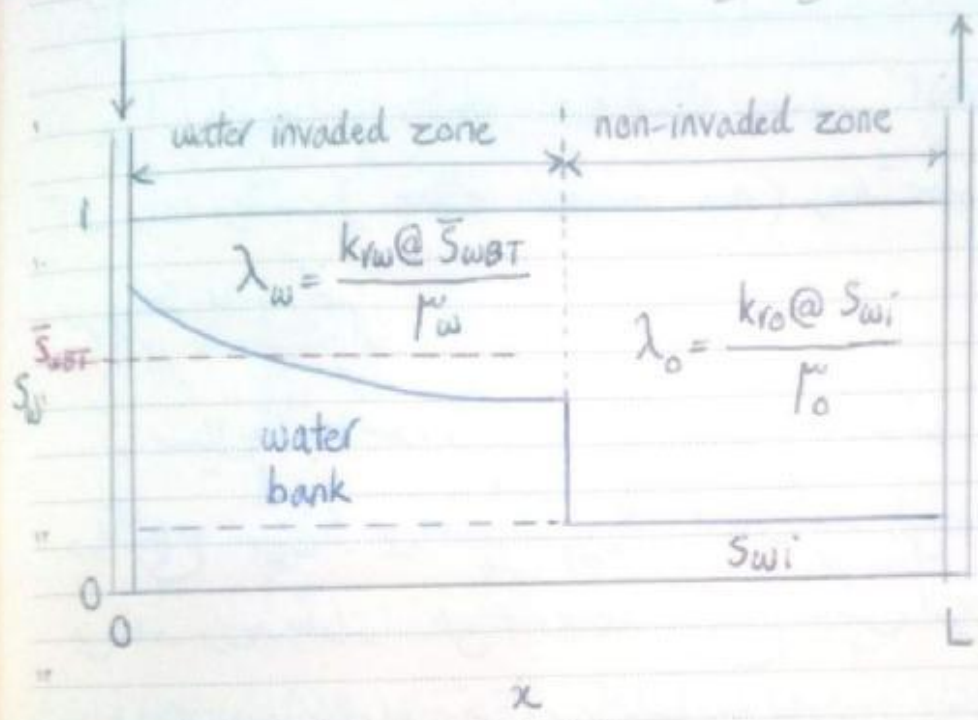 water invaded zone
non-invaded zone
1
λw = krw @ S̄wBT / μw
λo = kro @ Swi / μo
S̄wBT
Sw
water
bank
Swi
0
0
L
x